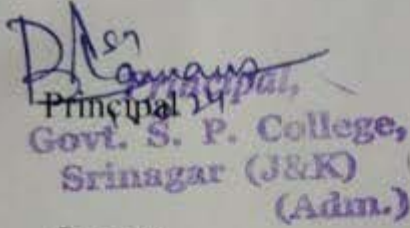 Principal,
Principal
Govt. S. P. College,
Srinagar (J&K)
(Adm.)